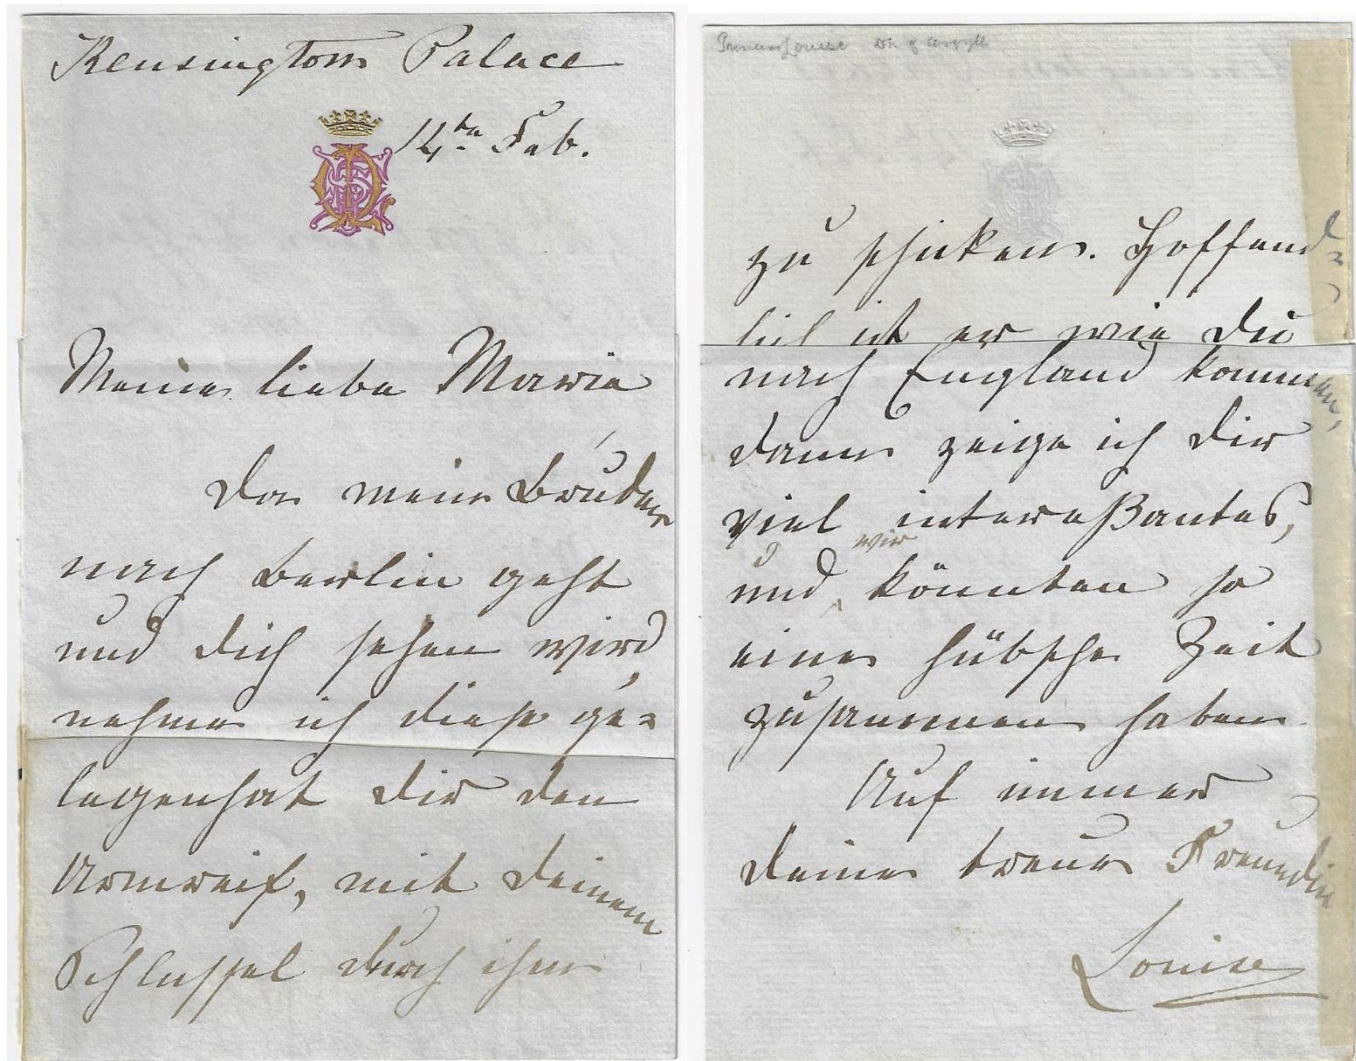 Kensington Palace
14te Feb.
Meine liebe Marie
Da mein Bruder
nach Berlin geht
und dich sehen wird
nehme ich diese ge=
legenhat dir den
Armreif, mit deinem
Schlussel durch ihn
Princess Louise Dss of Argyll
zu schicken. Hoffend=
lich ist er wie du
nach England kommen,
dann zeige ich dir
viel intereßantes,
wir
und könnten so
eine hübsche Zeit
zusammen haben.
Auf immer
deine treue Freundin
Louise